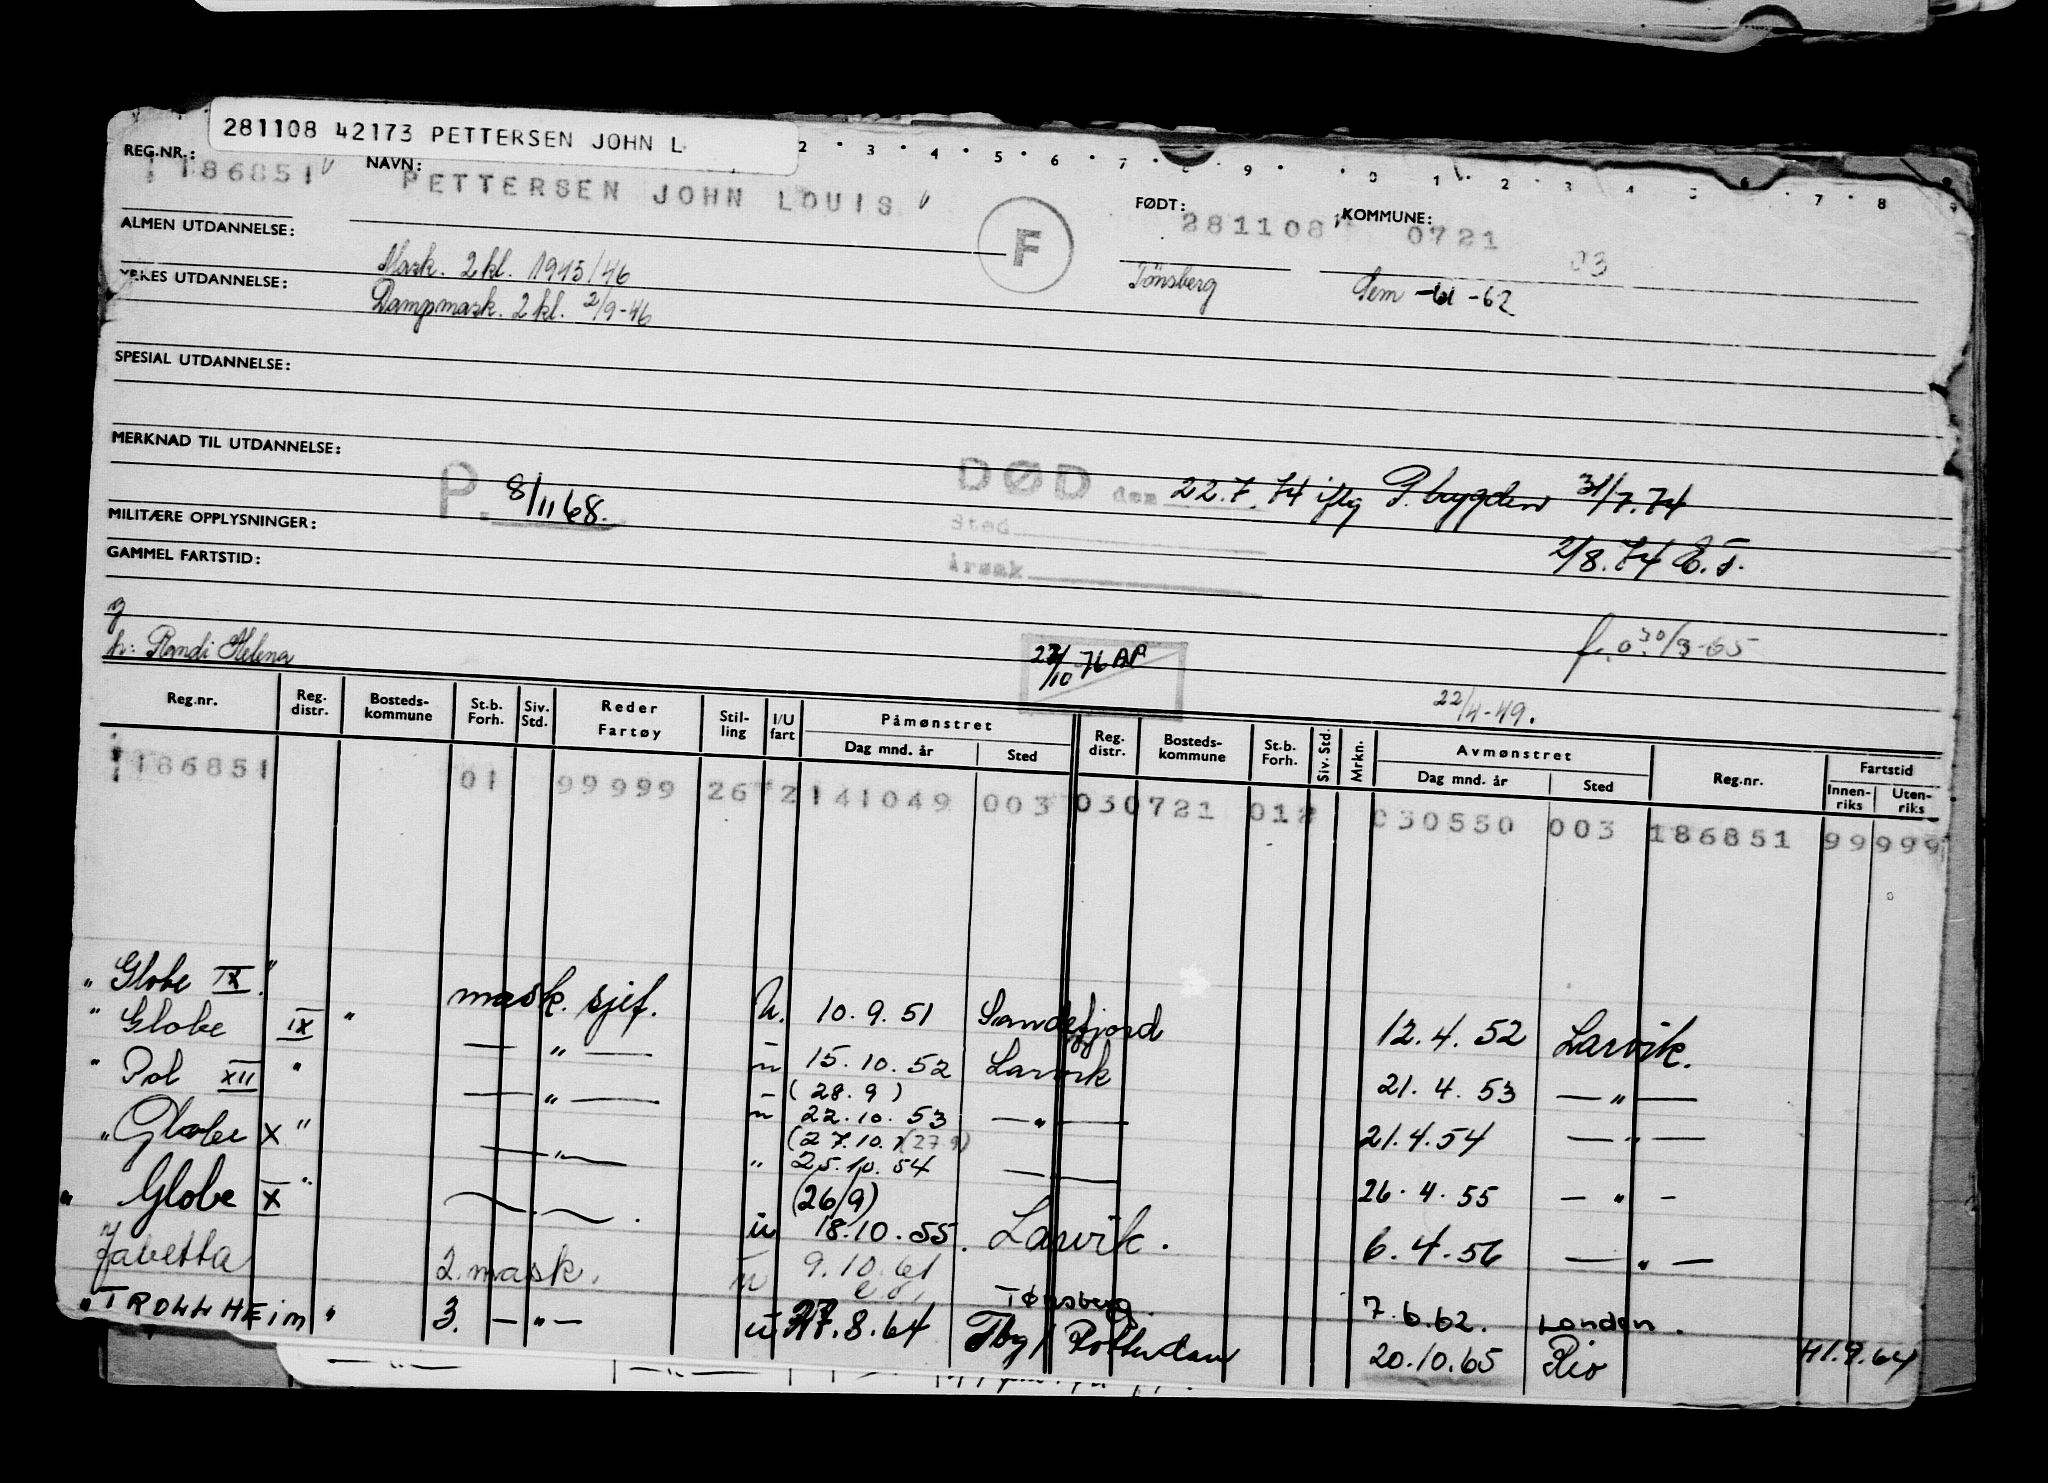 281108 42173 PETTERSEN JOHN L
2 · 3 · 4 · 5 · 6 · 7 · 8 · 9 · · 0 1 · 2 3 4 5 6 · 7 · 8
REG.NR.: 186851 NAVN: PETTERSEN JOHN LOUIS F FØDT: 281108 KOMMUNE: 0721 03
ALMEN UTDANNELSE:
Mask. 2 kl. 1945/46 Tønsberg Sem -61 -62
YRKES UTDANNELSE: Dampmask. 2 kl. 2/9-46
SPESIAL UTDANNELSE:
MERKNAD TIL UTDANNELSE:
P. 8/11 68. DØD den 22.7.74 iflg P. bygden 31/7.74
MILITÆRE OPPLYSNINGER: Sted
2/8.74 E.T.
GAMMEL FARTSTID: Årsak
g
h: Randi Helena 22/10 76 AP f.o. 30/3-65
22/4-49.
Reg.nr. Reg. distr. Bosteds-kommune St.b. Forh. Siv. Std. Reder Fartøy Stil-ling I/U fart Påmønstret Dag mnd. år Sted Reg. distr. Bosteds-kommune St.b. Forh. Siv. Std. Mrkn. Avmønstret Dag mnd. år Sted Reg.nr. Fartstid Innen-riks Uten-riks
186851 01 99999 26 2 141049 003 030721 012 030550 003 186851 99999
" Globe IX " mask. sjef. U. 10.9.51 Sandefjord 12.4.52 Larvik.
" Globe IX " — " — u 15.10.52 Larvik 21.4.53 — " —
(28.9)
" Pol XII " — " — u 22.10.53 — " — 21.4.54 — " —
(27.10.) (27.9)
" Globe X " — " — " 25.10.54 — — 26.4.55 — " —
(26/9)
" Globe X " u 18.10.55. Larvik. 6.4.56 — " —
Javetta 2. mask. u 9.10.61 Tønsberg. 7.6.62. London.
" TROLLHEIM " 3. — " — u 27.8.64 Tbg/ Rotterdam 20.10.65 Rio 41.9.64